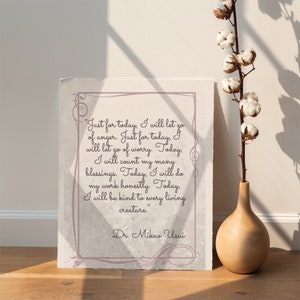 "Just for today, I will let go
of anger. Just for today, I
will let go of worry. Today,
I will count my many
blessings. Today, I will do
my work honestly. Today,
I will be kind to every living
creature."
Dr. Mikao Usui